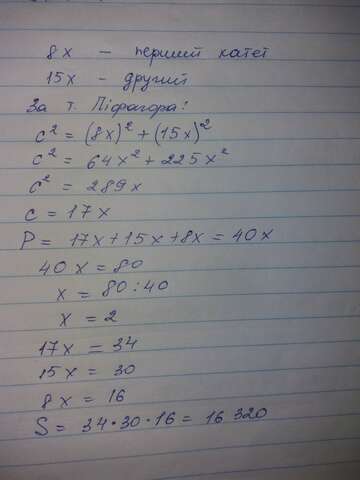 8x — перший катет
15x - другий
За т. Піфагора:
c² = (8x)² + (15x)²
c² = 64x² + 225x²
c² = 289x
c = 17x
P = 17x + 15x + 8x = 40x
40x = 80
x = 80 : 40
x = 2
17x = 34
15x = 30
8x = 16
S = 34 · 30 · 16 = 16 320